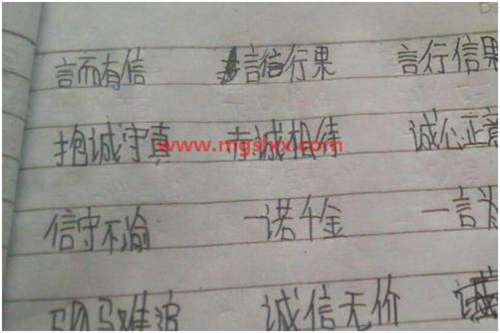 言而有信 言信行果 言行信果
抱诚守真 赤诚相待 诚心正意
www.mgshxx.com
信守不渝 一诺千金 一言为
驷马难追 诚信无价